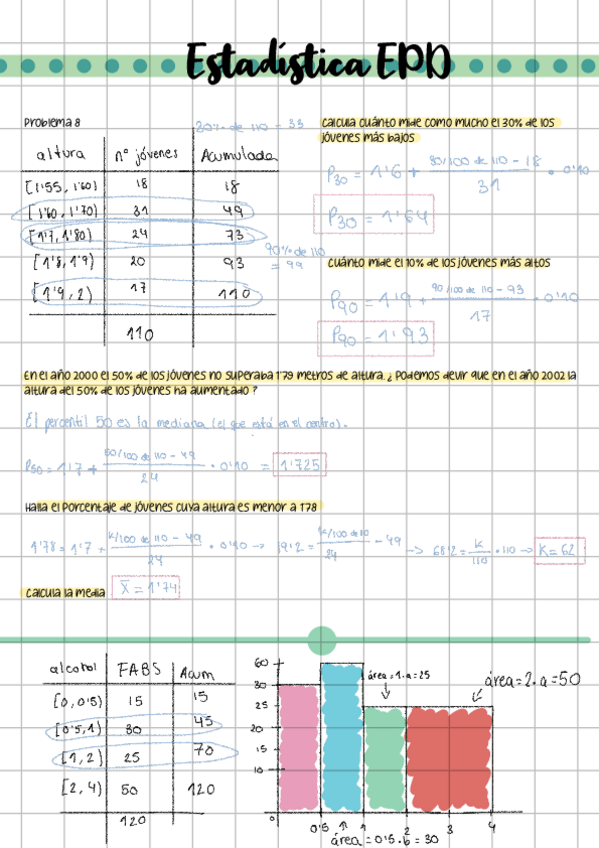 Estadística EPD
Problema 8
30% de 110 = 33
altura nº jóvenes Acumulada
[1'55, 1'60) 18 18
[1'60, 1'70) 31 49
[1'7, 1'80) 24 73
[1'8, 1'9) 20 93
[1'9, 2) 17 110
110
90% de 110
= 99
Calcula cuánto mide como mucho el 30% de los
jóvenes más bajos
P30 = 1'6 + 30/100 de 110 - 18 / 31 · 0'10
P30 = 1'64
Cuánto mide el 10% de los jóvenes más altos
P90 = 1'9 + 90/100 de 110 - 93 / 17 · 0'10
P90 = 1'93
En el año 2000 el 50% de los jóvenes no superaba 1'79 metros de altura. ¿ Podemos devir que en el año 2002 la
altura del 50% de los jóvenes ha aumentado ?
El percentil 50 es la mediana (el que está en el centro).
P50 = 1'7 + 50/100 de 110 - 49 / 24 · 0'10 = 1'725
Halla el Porcentaje de jóvenes cuya altura es menor a 1'78
1'78 = 1'7 + K/100 de 110 - 49 / 24 · 0'10 → 19'2 = K/100 de 110 / 24 - 49 -> 68'2 = K/110 · 110 → K = 62
Calcula la media x̄ = 1'74
alcohol FABS Acum
[0, 0'5) 15 15
[0'5, 1) 30 45
[1, 2) 25 70
[2, 4) 50 120
120
60
30
25
20
15
10
0 0'5 1 2 3 4
área = 1 · a = 25
área = 2 · a = 50
área = 0'5 · b = 30